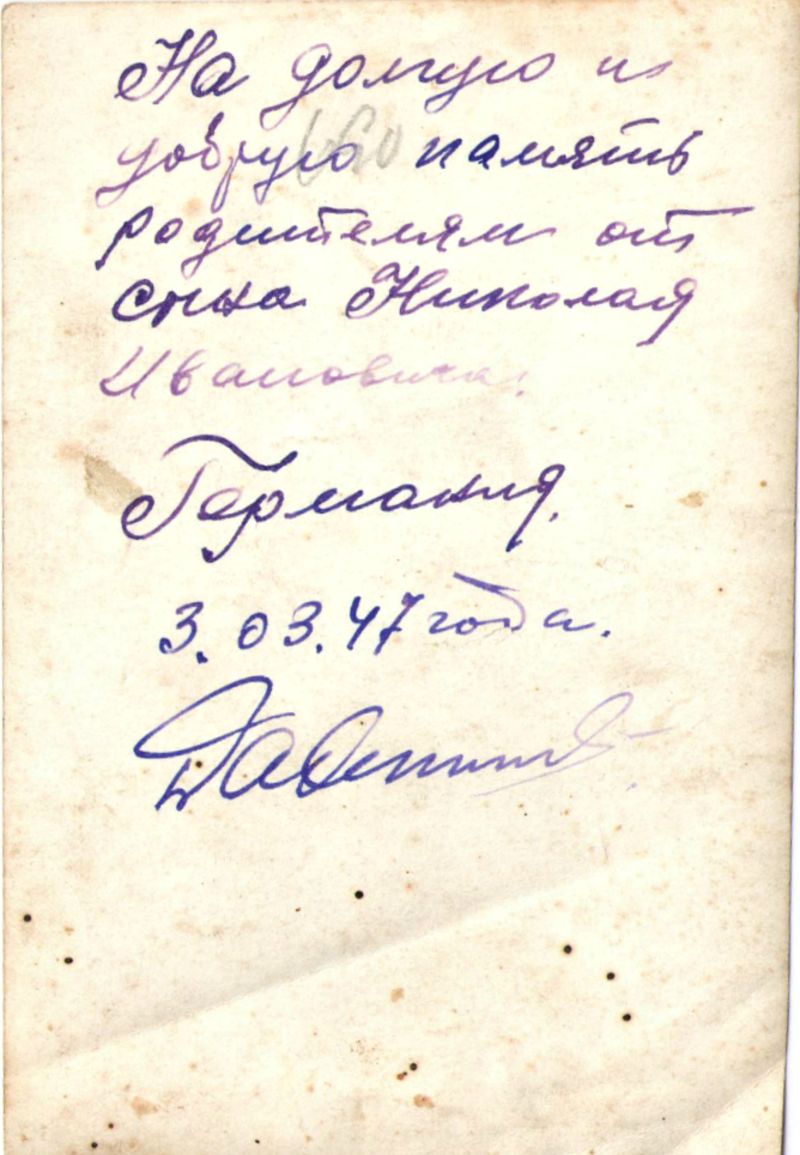 На долгую и
добрую память
родителям от
сына Николая
Ивановича.
Германия.
3.03.47 года.